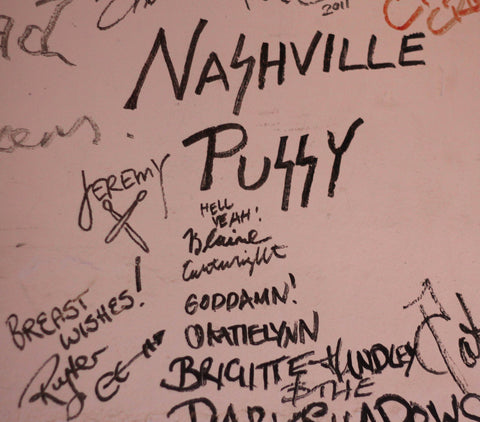 2011
NASHVILLE
PUSSY
JEREMY
HELL
YEAH!
Blaine
Cartwright
GODDAMN!
BREAST
WISHES!
Ruyter
KATIELYNN
BRIGITTE HANDLEY
& THE
DARK SHADOWS